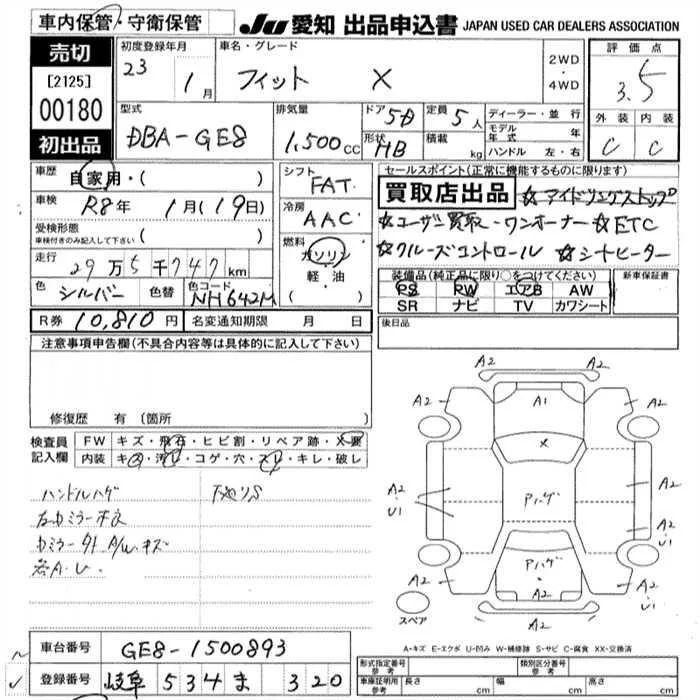 車内保管・守衛保管
JU 愛知 出品申込書 JAPAN USED CAR DEALERS ASSOCIATION
売切
[2125]
00180
初出品
初度登録年月
23 1月
車名・グレード
フィット X
2WD
・
4WD
評価点
3.5
外装 内装
C C
型式
DBA-GE8
排気量
1,500cc
ドア
5D
形状
HB
定員
5人
積載
kg
ディーラー・並行
モデル年式 年
ハンドル 左・右
車歴
自家用・( )
車検
R8年 1月(19日)
受検形態
車検付きのみ記入して下さい ( )
走行
29万5千747km
色
シルバー
色替
色コード
NH642M
シフト
FAT
冷房
AAC
燃料
ガソリン
軽・油
・( )
セールスポイント(正常に機能するものに限ります)
買取店出品 ☆アイドリングストップ
☆ユーザー買取・ワンオーナー ☆ETC
☆クルーズコントロール ☆シートヒーター
装備品(純正品に限り○をつけてください)
PS PW エアB AW
SR ナビ TV カワシート
新車保証書
R券 10,810円
名変通知期限 月 日
後日品
注意事項申告欄(不具合内容等は具体的に記入して下さい)
修復歴 有(箇所
検査員記入欄
FW キズ・飛石・ヒビ割・リペア跡・X要
内装 キズ・汚れ・コゲ・穴・スレ・キレ・破レ
ハンドルハゲ
下廻りS
各A.U.
A2
A2 A1 A2
X
A2
・
U1
Pハゲ
A2
A2
・
U1
Pハゲ
A2 A2 A2
・
U1
スペア
A2
A-キズ E-エクボ U-凹み W-補修跡 S-サビ C-腐食 XX-交換済
車台番号
GE8-1500893
登録番号
岐阜 534 ま 320
形式指定番号
参考
類別区分番号
参考
車庫証明用
参考
長さ cm 幅 cm 高さ cm